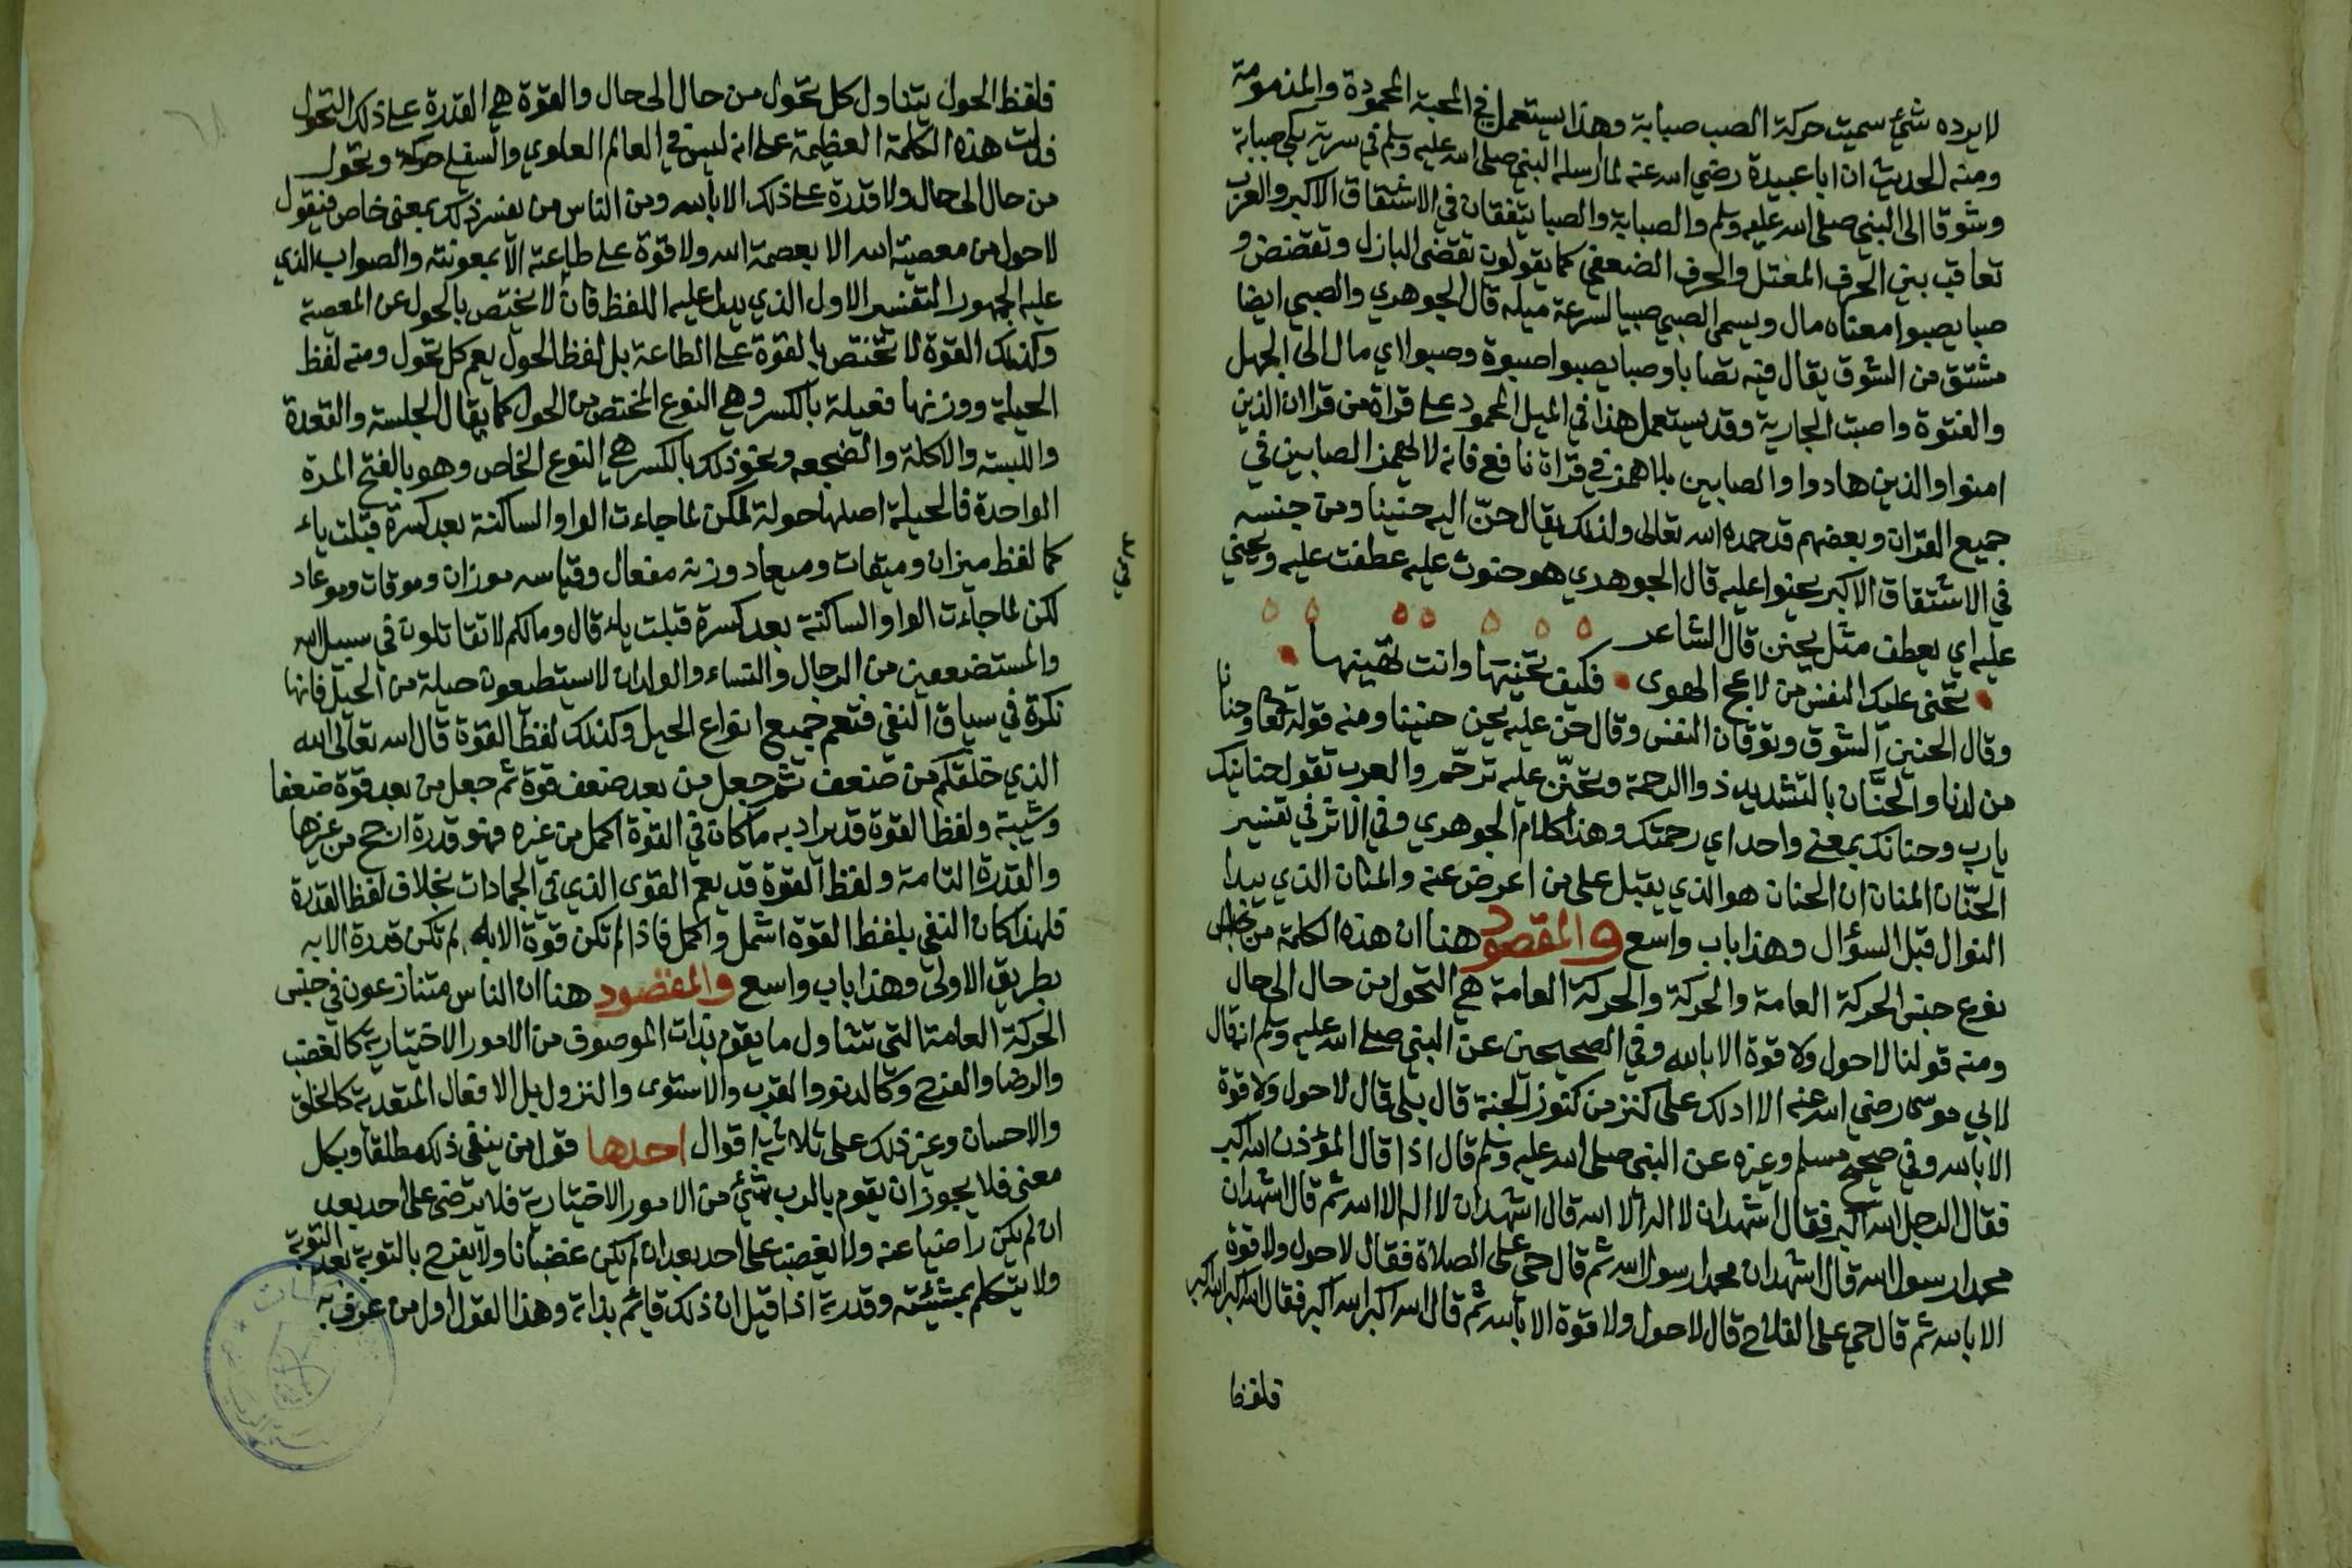 لا يرده شئ سميت حركة الصب صبابة وهذا يستعمل في المحبة المحمودة والمذمومة
ومنه الحديث ان ابا عبيدة رضي الله عنه لما ارسله النبي صلى الله عليه وسلم في سرية بكى صبابة
وشوقا الى النبي صلى الله عليه وسلم والصبابة والصبا يتفقان في الاشتقاق الاكبر والعرب
تعاقب بين الحرف المعتل والحرف المضعف كما يقولون تقضى البازل وتقضض و
صبا يصبوا معناه مال ويسمى الصبي صبيا لسرعة ميله قال الجوهري والصبي ايضا
مشتق من الشوق يقال فيه تصابا وصبا يصبوا صبوة وصبوا اي مال الى الجهل
والفتوة واصبت الجارية وقد يستعمل هذا في الميل المحمود على قراة من قرا ان الذين
امنوا والذين هادوا والصابين بلا همز في قراة نافع فانه لا يهمز الصابين في
جميع القران وبعضهم قد حمده الله تعالى ولذلك يقال حنّ اليه حنينا ومن جنسه
في الاشتقاق الاكبر يحنوا عليه قال الجوهري هو حنوت عليه عطفت عليه ويحني
عليه اي يعطف مثل يحنن قال الشاعر
تحنى عليك النفس من لاعج الهوى فكيف تحنيها وانت تهينها
وقال الحنين الشوق وتوقان النفس وقال حن عليه يحن حنينا ومنه قوله تعا وحنانا
من لدنا والحنَّان بالتشديد ذو الرحمة وتحنّن عليه ترحّم والعرب تقول حنانيك
يارب وحنانك بمعنى واحد اي رحمتك وهذا كلام الجوهري وفي الاثر في تفسير
الحنّان المنان ان الحنان هو الذي يقبل على من اعرض عنه والمنان الذي يبدا
النوال قبل السؤال وهذا باب واسع والمقصود هنا ان هذه الكلمة من
نوع جنس الحركة العامة والحركة والحركة العامة هي التحول من حال الى حال
ومنه قولنا لا حول ولا قوة الا بالله وفي الصحيحين عن النبي صلى الله عليه وسلم انه قال
لابي موسى رضي الله عنه الا ادلك على كنز من كنوز الجنة قال بلى قال لا حول ولا قوة
الا بالله وفي صحيح مسلم وغيره عن النبي صلى الله عليه وسلم قال اذا قال المؤذن الله اكبر
فقال الرجل الله اكبر فقال اشهد ان لا اله الا الله قال اشهد ان لا اله الا الله ثم قال اشهد ان
محمدا رسول الله قال اشهد ان محمدا رسول الله ثم قال حي على الصلاة فقال لا حول ولا قوة
الا بالله ثم قال حي على الفلاح قال لا حول ولا قوة الا بالله ثم قال الله اكبر الله اكبر فقال الله اكبر الله اكبر
فلفظ
فلفظ الحول يتناول كل تحول من حال الى حال والقوة هي القدرة على ذلك التحول
فدلت هذه الكلمة العظيمة على انه ليس في العالم العلوي والسفلي حركة وتحول
من حال الى حال ولا قدرة على ذلك الا بالله ومن الناس من يفسر ذلك بمعنى خاص فيقول
لا حول من معصية الله الا بعصمة الله ولا قوة على طاعته الا بمعونته والصواب الذي
عليه الجمهور التفسير الاول الذي يدل عليه اللفظ فان لا يختص بالحول عن المعصية
وكذلك القوة لا تختص بالقوة على الطاعة بل لفظ الحول يعم كل تحول ومنه لفظ
الحيلة ووزنها فعيلة بالكسر وهي النوع المختص من الحول كما يقال الجلسة والقعدة
واللبسة والاكلة والضجعه ونحو ذلك بالكسر هي النوع الخاص وهو بالفتح المرة
الواحدة فالحيلة اصلها حولة لكن لما جاءت الواو الساكنة بعد كسرة قبلت ياء
كما لفظ ميزان وميقات وميعاد وزنه مفعال وقياسه موزان وموقات وموعاد
لكن لما جاءت الواو الساكنة بعد كسرة قبلت ياء قال وما لكم لا تقاتلون في سبيل الله
والمستضعفين من الرجال والنساء والولدان لا يستطيعون حيلة من الحيل فانها
نكرة في سياق النفي فتعم جميع انواع الحيل وكذلك لفظ القوة قال الله تعالى الله
الذي خلقكم من ضعف ثم جعل من بعد ضعف قوة ثم جعل من بعد قوة ضعفا
وشيبة ولفظ القوة قد يراد به ما كان في القوة اكمل من غيره فهو قدرة ارجح من غيرها
والقدرة التامة ولفظ القوة قد يعم القوى الذي في الجمادات بخلاف لفظ القدرة
فلهذا كان النفي بلفظ القوة اشمل واكمل فاذا لم تكن قوة الا به لم تكن قدرة الا به
بطريق الاولى وهذا باب واسع والمقصود هنا ان الناس متنازعون في جنس
الحركة العامة التي تتناول ما يقوم بذات الموصوف من الامور الاختيارية كالغضب
والرضا والفرح وكالدنو والقرب والاستوى والنزول بل الافعال المتعدية كالخلق
والاحسان وغير ذلك على ثلاثة اقوال احدها قول من ينفي ذلك مطلقا وبكل
معنى فلا يجوز ان يقوم بالرب شئ من الامور الاختيارية فلا يرضى على احد بعد
ان لم يكن راضيا عنه ولا يغضب على احد بعد ان لم يكن غضبانا ولا يفرح بالتوبة بعد التوبة
ولا يتكلم بمشيئته وقدرته اذا قيل ان ذلك قائم بذاته وهذا القول اول من عرف به